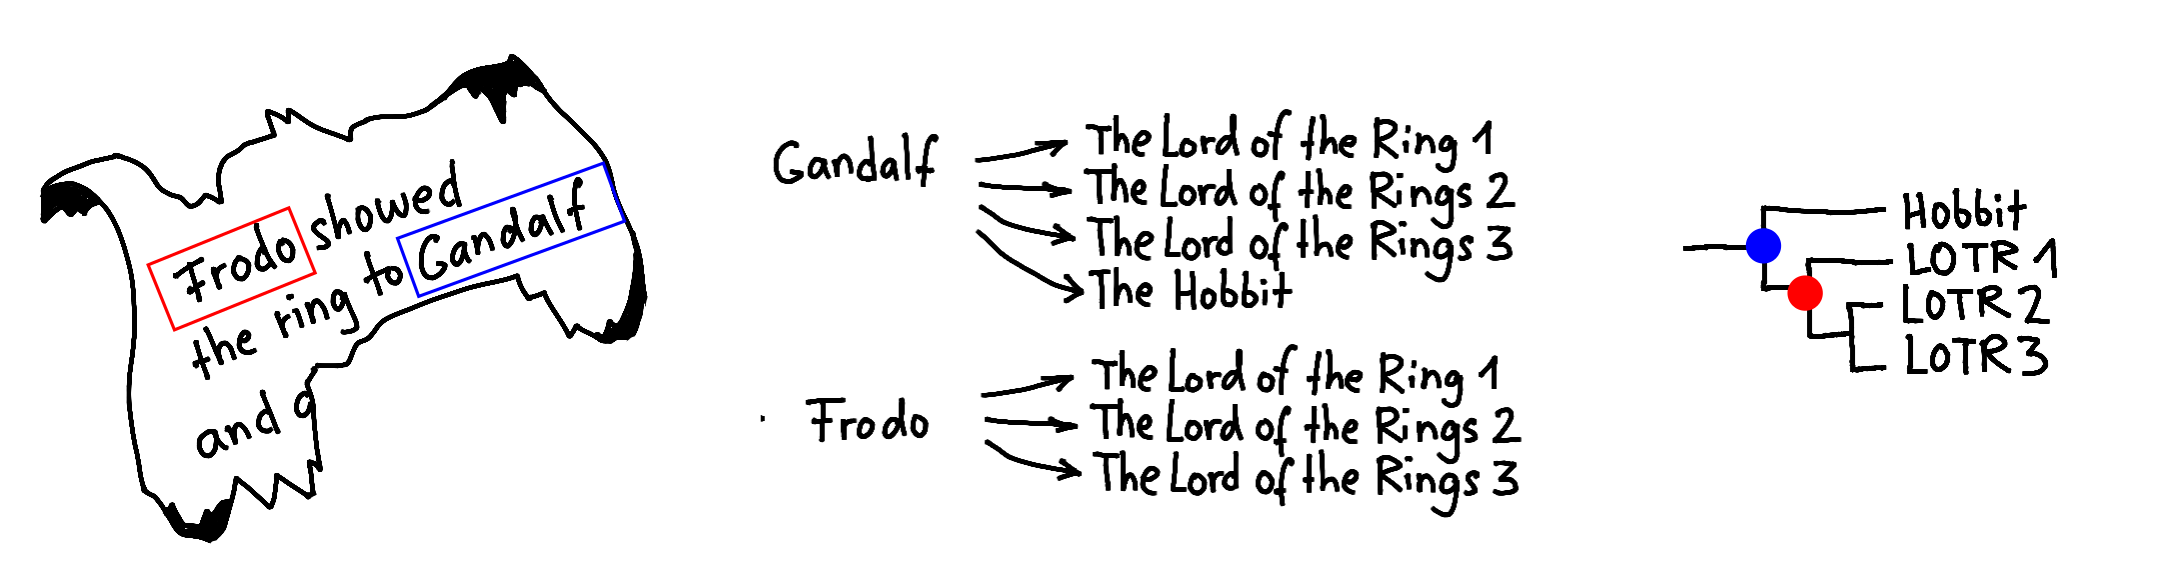 Frodo showed
the ring to Gandalf
and a
Gandalf
The Lord of the Ring 1
The Lord of the Rings 2
The Lord of the Rings 3
The Hobbit
Frodo
The Lord of the Ring 1
The Lord of the Rings 2
The Lord of the Rings 3
Hobbit
LOTR 1
LOTR 2
LOTR 3